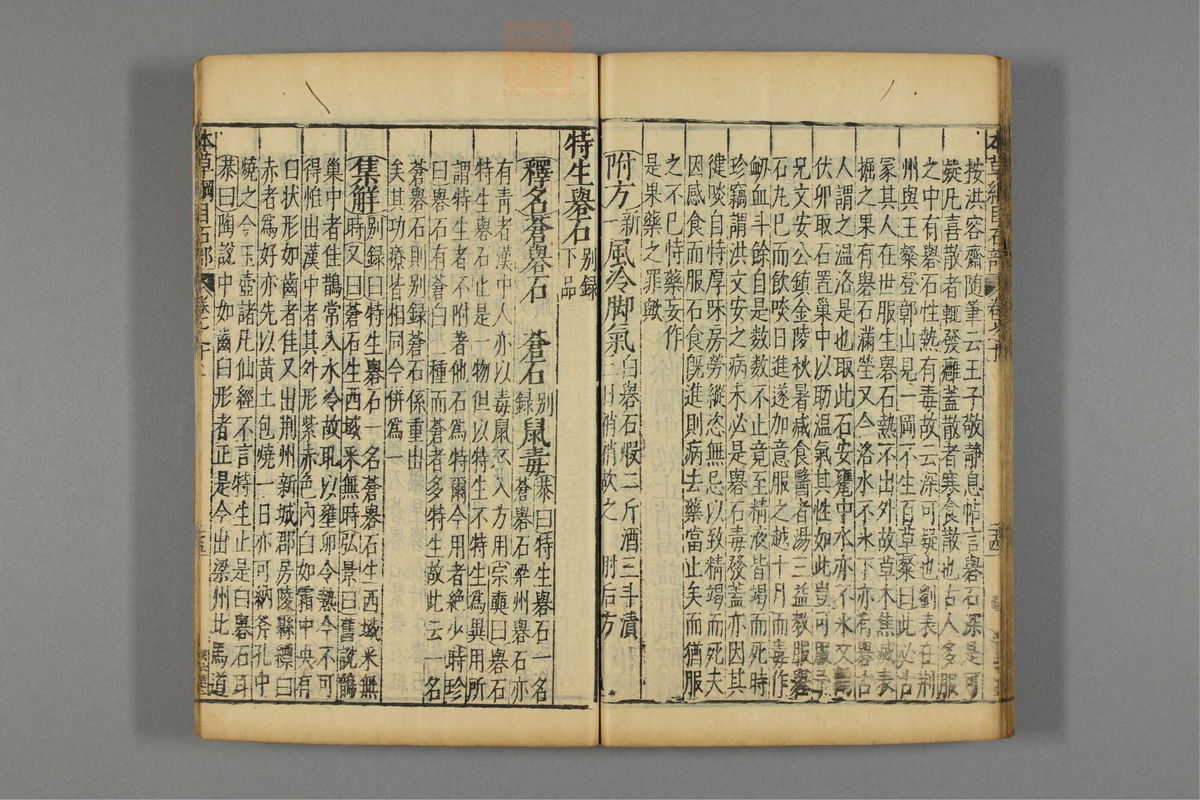 按洪容齋隨筆云王子敬靜息帖言礜石深是可
疑凡喜散者輒發癰蓋散者寒食散也古人多服
之中有礜石性熱有毒故云深可疑也劉表在荆
州與王粲登鄣山見一岡不生百草粲曰此必古
冢其人在世服生礜石熱不出外故草木焦滅表
掘之果有礜石滿塋又今洛水不氷下亦有礜石
人謂之温洛是也取此石安甕中水亦不氷文鸛
伏卵取石置巢中以助温氣其性如此豈可服予
兄文安公鎮金陵秋暑減食醫者湯三益教服礜
石丸已而飲啖日進遂加意服之越十月而毒作
衂血斗餘自是數數不止竟至精液皆竭而死時
珍竊謂洪文安之病未必是礜石毒發蓋亦因其
健啖自恃厚味房勞縱恣無忌以致精竭而死夫
因減食而服石食旣進則病去藥當止矣而猶服
之不已恃藥妄作
是果藥之罪歟
附方新一風冷脚氣白礜石煆二斤酒三斗漬三日稍稍飲之 肘后方
特生礜石别録下品
釋名蒼礜石 蒼石别録鼠毒恭曰特生礜石一名蒼礜石梁州礜石亦
有青者漢中人亦以毒鼠不入方用宗奭曰礜石
特生礜石止是一物但以特生不特生爲異用所
謂特生者不附著他石爲特爾今用者絶少時珍
曰礜石有蒼白一種而蒼者多特生故此云一名
蒼礜石則别録蒼石係重出
矣其功療皆相同今併爲一
集解别録曰特生礜石一名蒼礜石生西域采無
時又曰蒼石生西域采無時弘景曰舊說鸛
巢中者佳鵲常入水冷故取以壅卵令熱今不可
得惟出漢中者其外形紫赤色內白如霜中央有
臼狀形如齒者佳又出荆州新城郡房陵縣縹白
赤者爲好亦先以黃土包燒一日亦可内斧孔中
燒之今玉壺諸丸仙經不言特生止是白礜石耳
恭曰陶說中如齒臼形者正是今出梁州北馬道
本草綱目石部
本草綱目石部